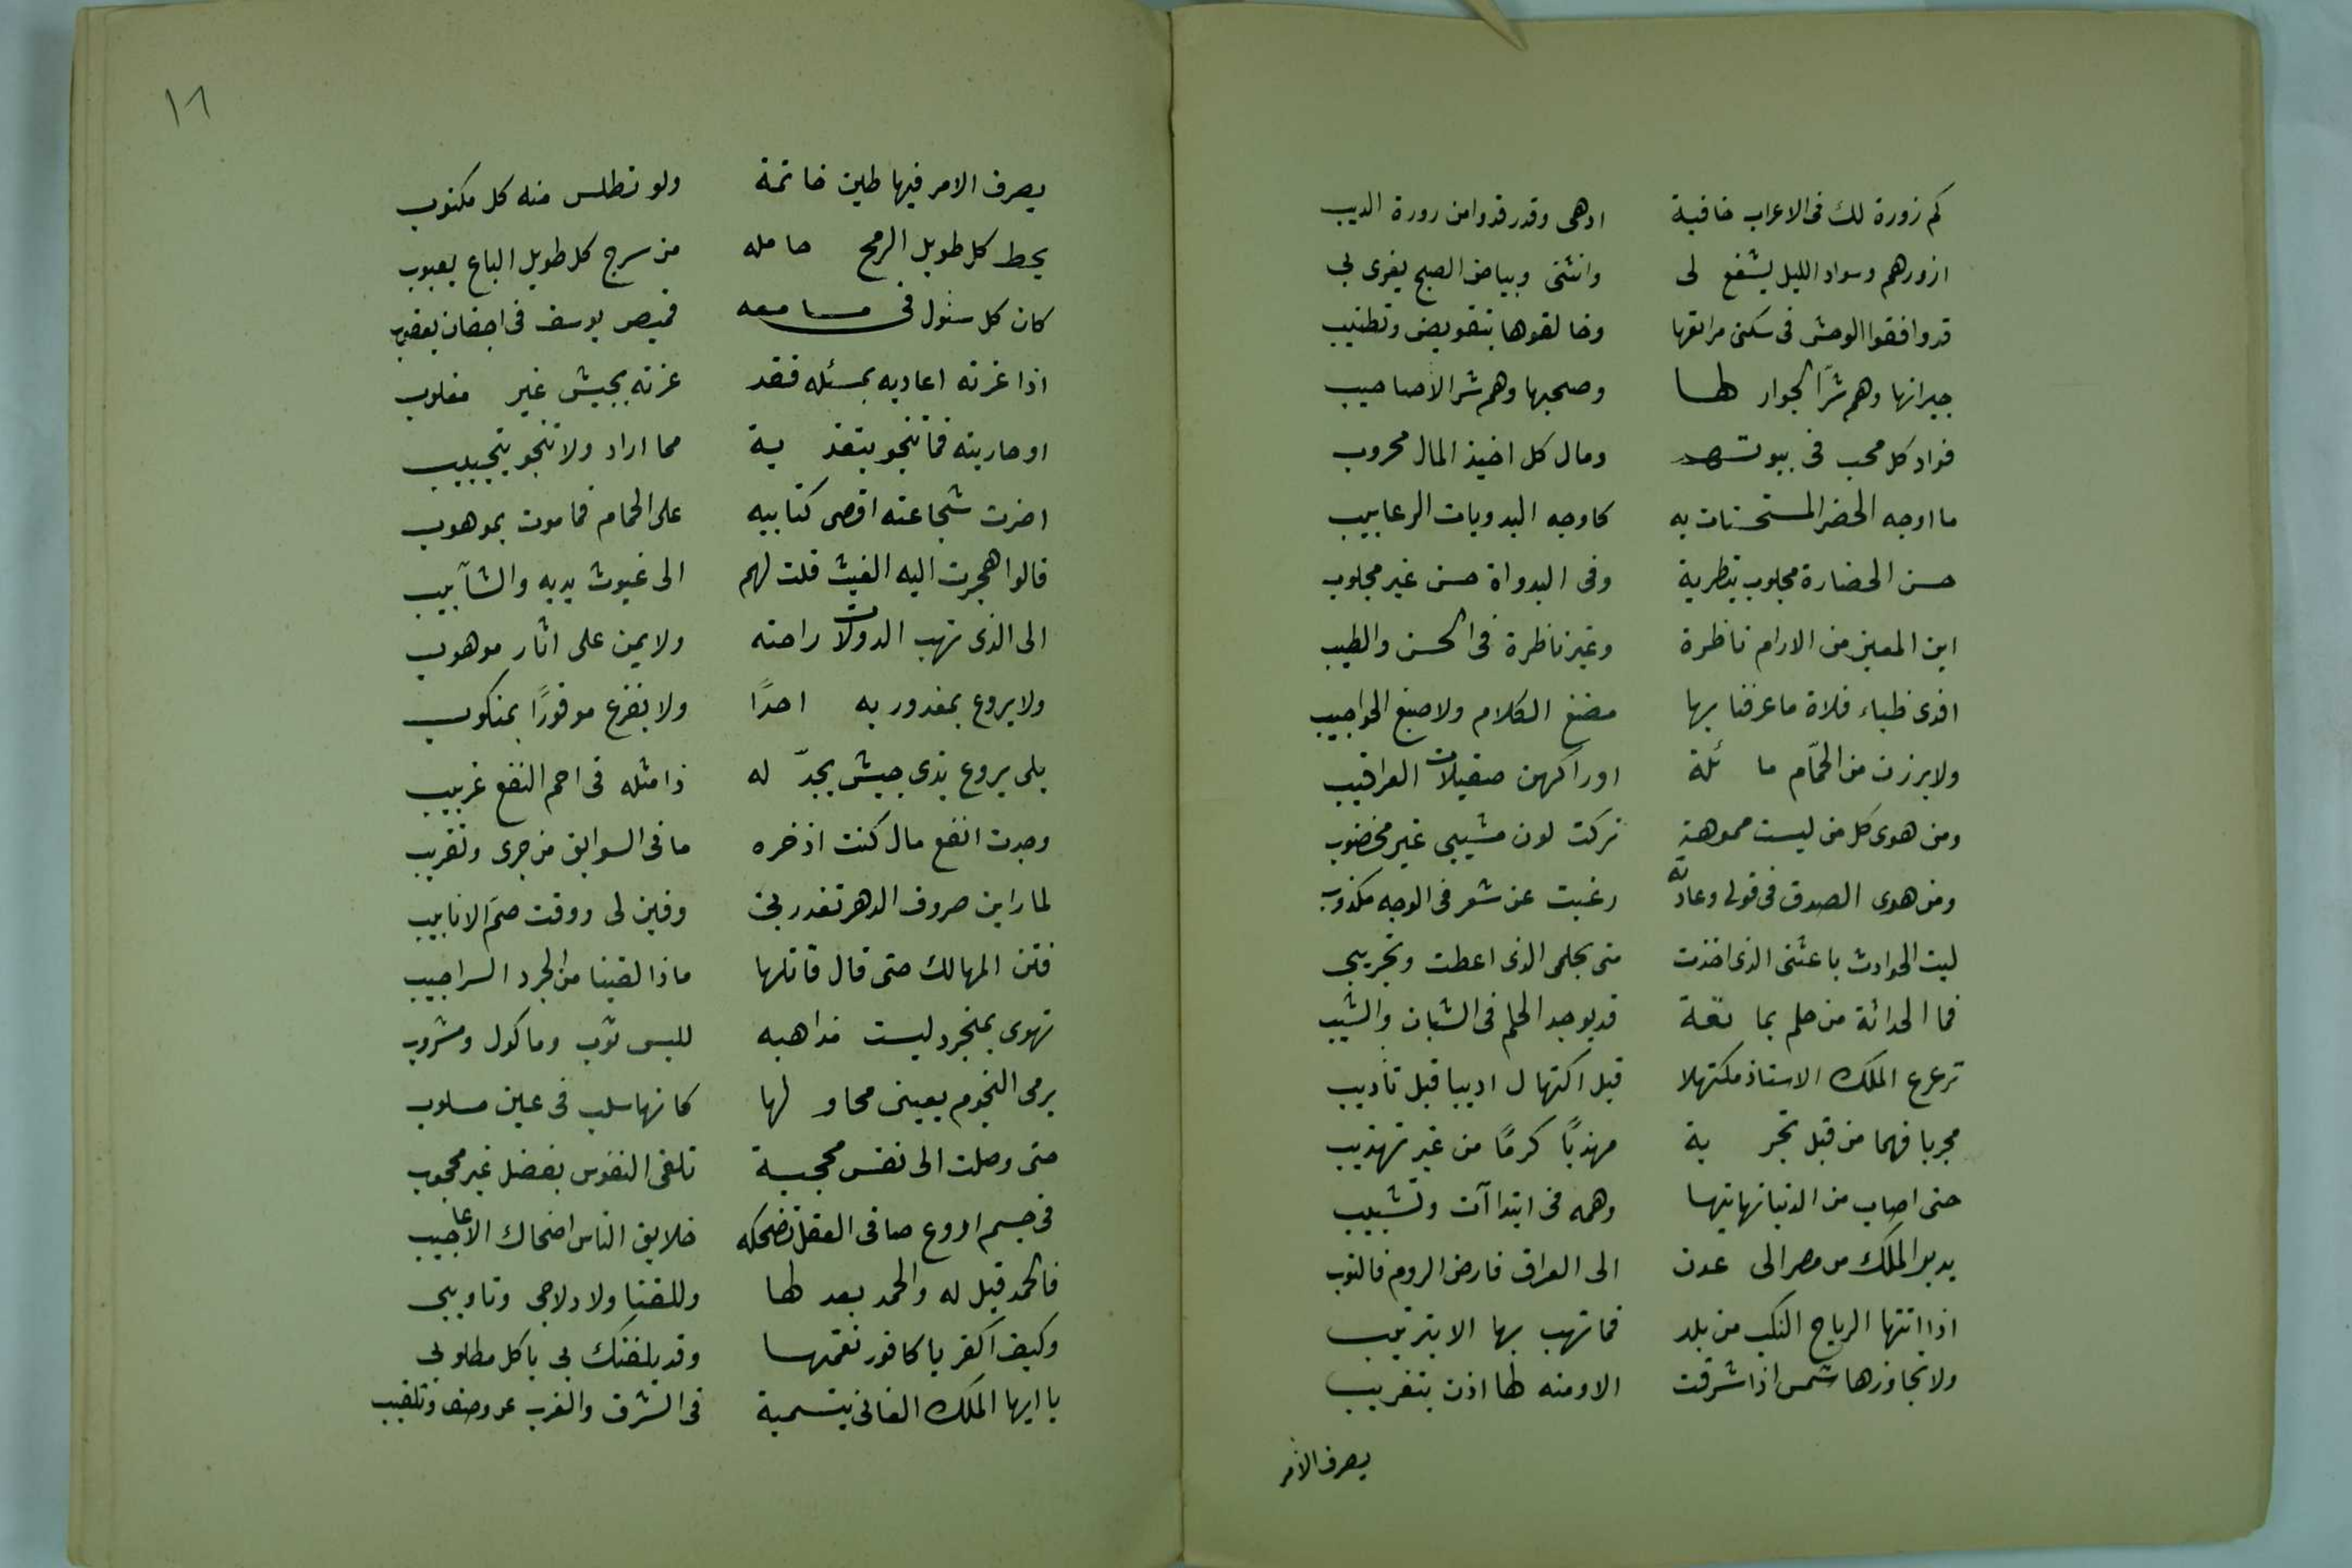 كم زورة لك فى الاعراب خافية ادهى وقد رقدوا من زورة الذيب
ازورهم وسواد الليل يشفع لى وانثنى وبياض الصبح يغرى بى
قد وافقوا الوحش فى سكنى مراتعها وخالفوها بتقويض وتطنيب
جيرانها وهم شرّ الجوار لها وصحبها وهم شر الأصاحيب
فواد كل محب فى بيوتهم ومال كل اخيذ المال محروب
ما اوجه الحضر المستحسنات به كاوجه البدويات الرعابيب
حسن الحضارة مجلوب بتطرية وفى البدواة حسن غير مجلوب
اين المعيز من الارام ناظرة وغير ناظرة فى الحسن والطيب
افدى ظباء فلاة ما عرفنا بها مضغ الكلام ولا صبغ الحواجيب
ولا برزن من الحمّام مائلة اوراكهن صقيلات العراقيب
ومن هوى كل من ليست مموهة تركت لون مشيبى غير مخضوب
ومن هوى الصدق فى قولى وعادته رغبت عن شعر فى الوجه مكذوب
ليت الحوادث باعتنى الذى اخذت منى بحلمى الذى اعطت وتجريبى
فما الحداثة من حلم بمانعة قد يوجد الحلم فى الشبان والشيب
ترعرع الملك الاستاذ مكتهلا قبل اكتهال اديبا قبل تأديب
مجربا فهما من قبل تجربة مهذبًا كرمًا من غير تهذيب
حتى اصاب من الدنيا نهايتها وهمه فى ابتداآت وتشبيب
يدبر الملك من مصر الى عدن الى العراق فارض الروم فالنوب
اذا اتتها الرياح النكب من بلد فما تهب بها الا بترتيب
ولا تجاوزها شمس اذا شرقت الا ومنه لها اذن بتغريب
يصرف الأمر
١٦
يصرف الامر فيها طين خاتمة ولو تطلس منه كل مكتوب
يحط كل طويل الرمح حامله من سرج كل طويل الباع يعبوب
كان كل سئول فى مسامعه قميص يوسف فى اجفان يعقوب
اذا غزته اعاديه بمسئله فقد غزته بجيش غير مغلوب
او حاربته فما تنجو بتقذية مما اراد ولا تنجو بتجبيب
اضرت شجاعته اقصى كتايبه على الحمام فما موت بموهوب
قالوا هجرت اليه الغيث قلت لهم الى غيوث يديه والشآبيب
الى الذى تهب الدولات راحته ولا يمن على اثار موهوب
ولا يروع بمغدور به احدًا ولا يفزع موفورًا بمنكوب
بلى يروع بذى جيش يجدّ له ذا مثله فى احم النقع غربيب
وجدت انفع مال كنت اذخره ما فى السوابق من جرى وتقريب
لما راين صروف الدهر تغدر بى وفين لى ووفت صمّ الانابيب
فتن المهالك حتى قال قائلها ماذا لقينا من الجرد السراجيب
تهوى بمنجرد ليست مذاهبه للبس ثوب وماكول ومشروب
يرمى النجوم بعينى محاولها كانها سلب فى عين مسلوب
حتى وصلت الى نفس محجبة تلقى النفوس بفضل غير محجوب
فى جسم اروع صافى العقل تضحكه خلايق الناس اضحاك الاعاجيب
فالحمد قبل له والحمد بعد لها وللقنا ولادلاجى وتاويبى
وكيف اكفر يا كافور نعمتها وقد بلغنك بى يا كل مطلوبى
يا ايها الملك الغانى بتسمية فى الشرق والغرب عن وصف وتلقيب